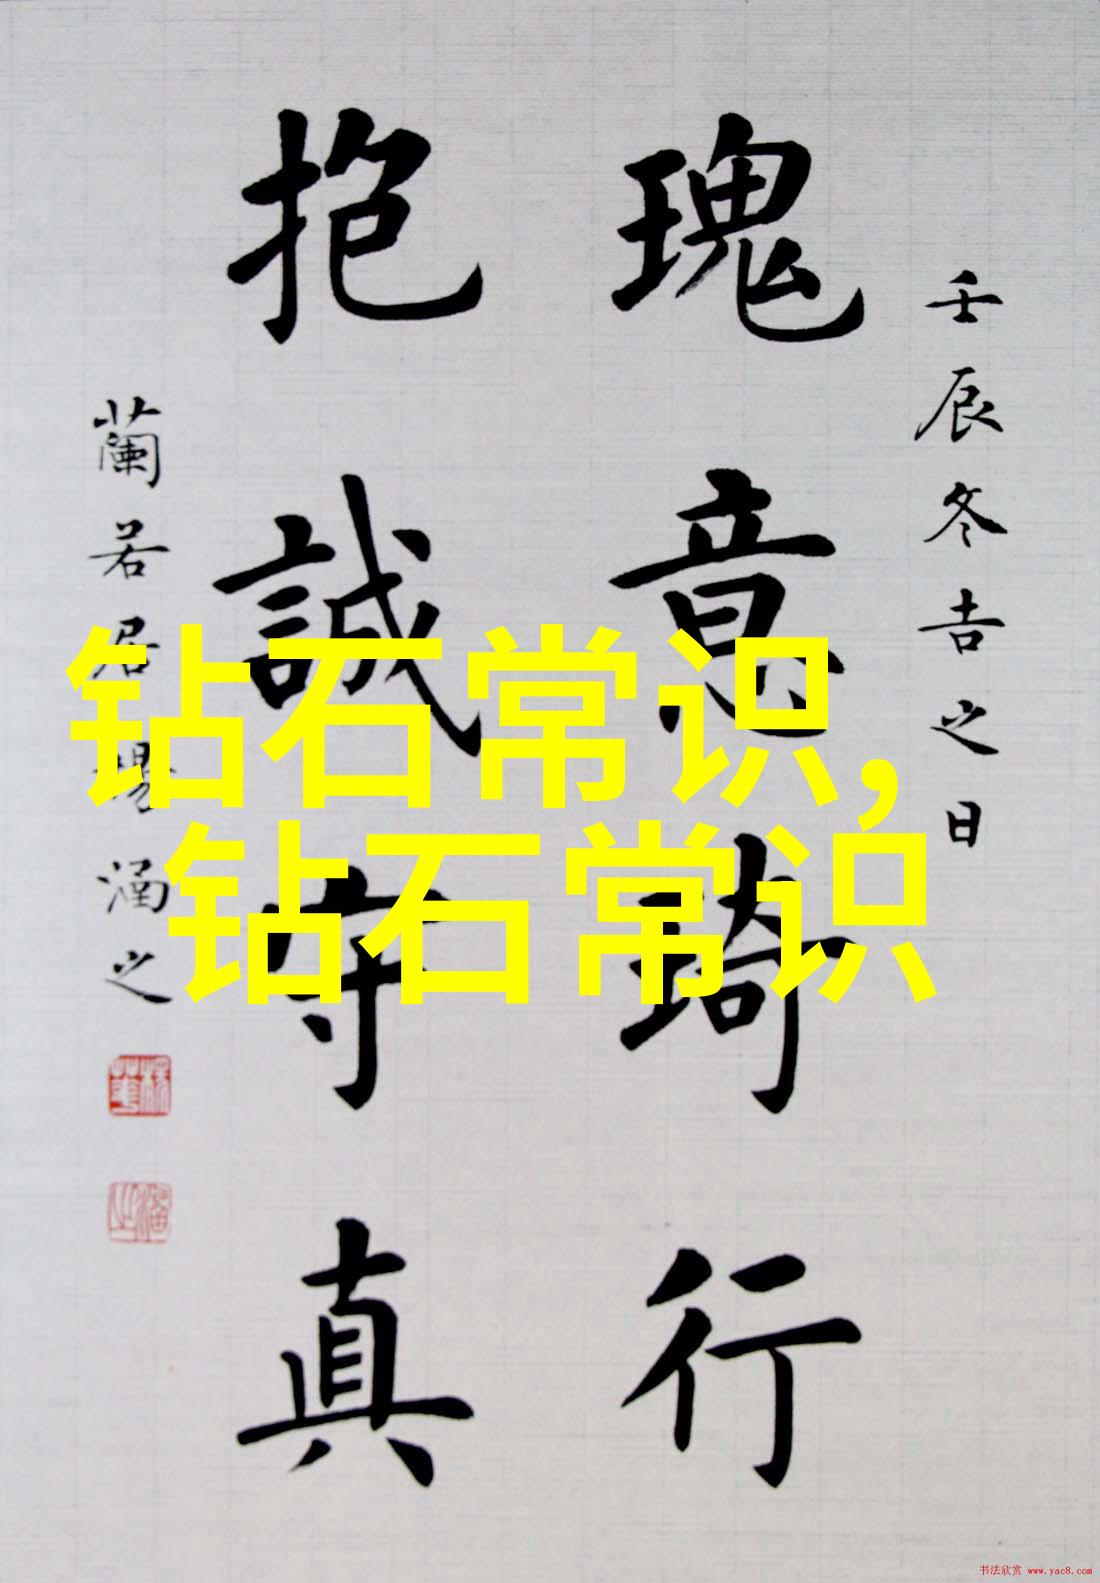 壬辰冬吉之日
瑰意琦行
抱誠守真
蘭若居楊涵之
钻石常识,
钻石常识
书法欣赏 www.yac8.com